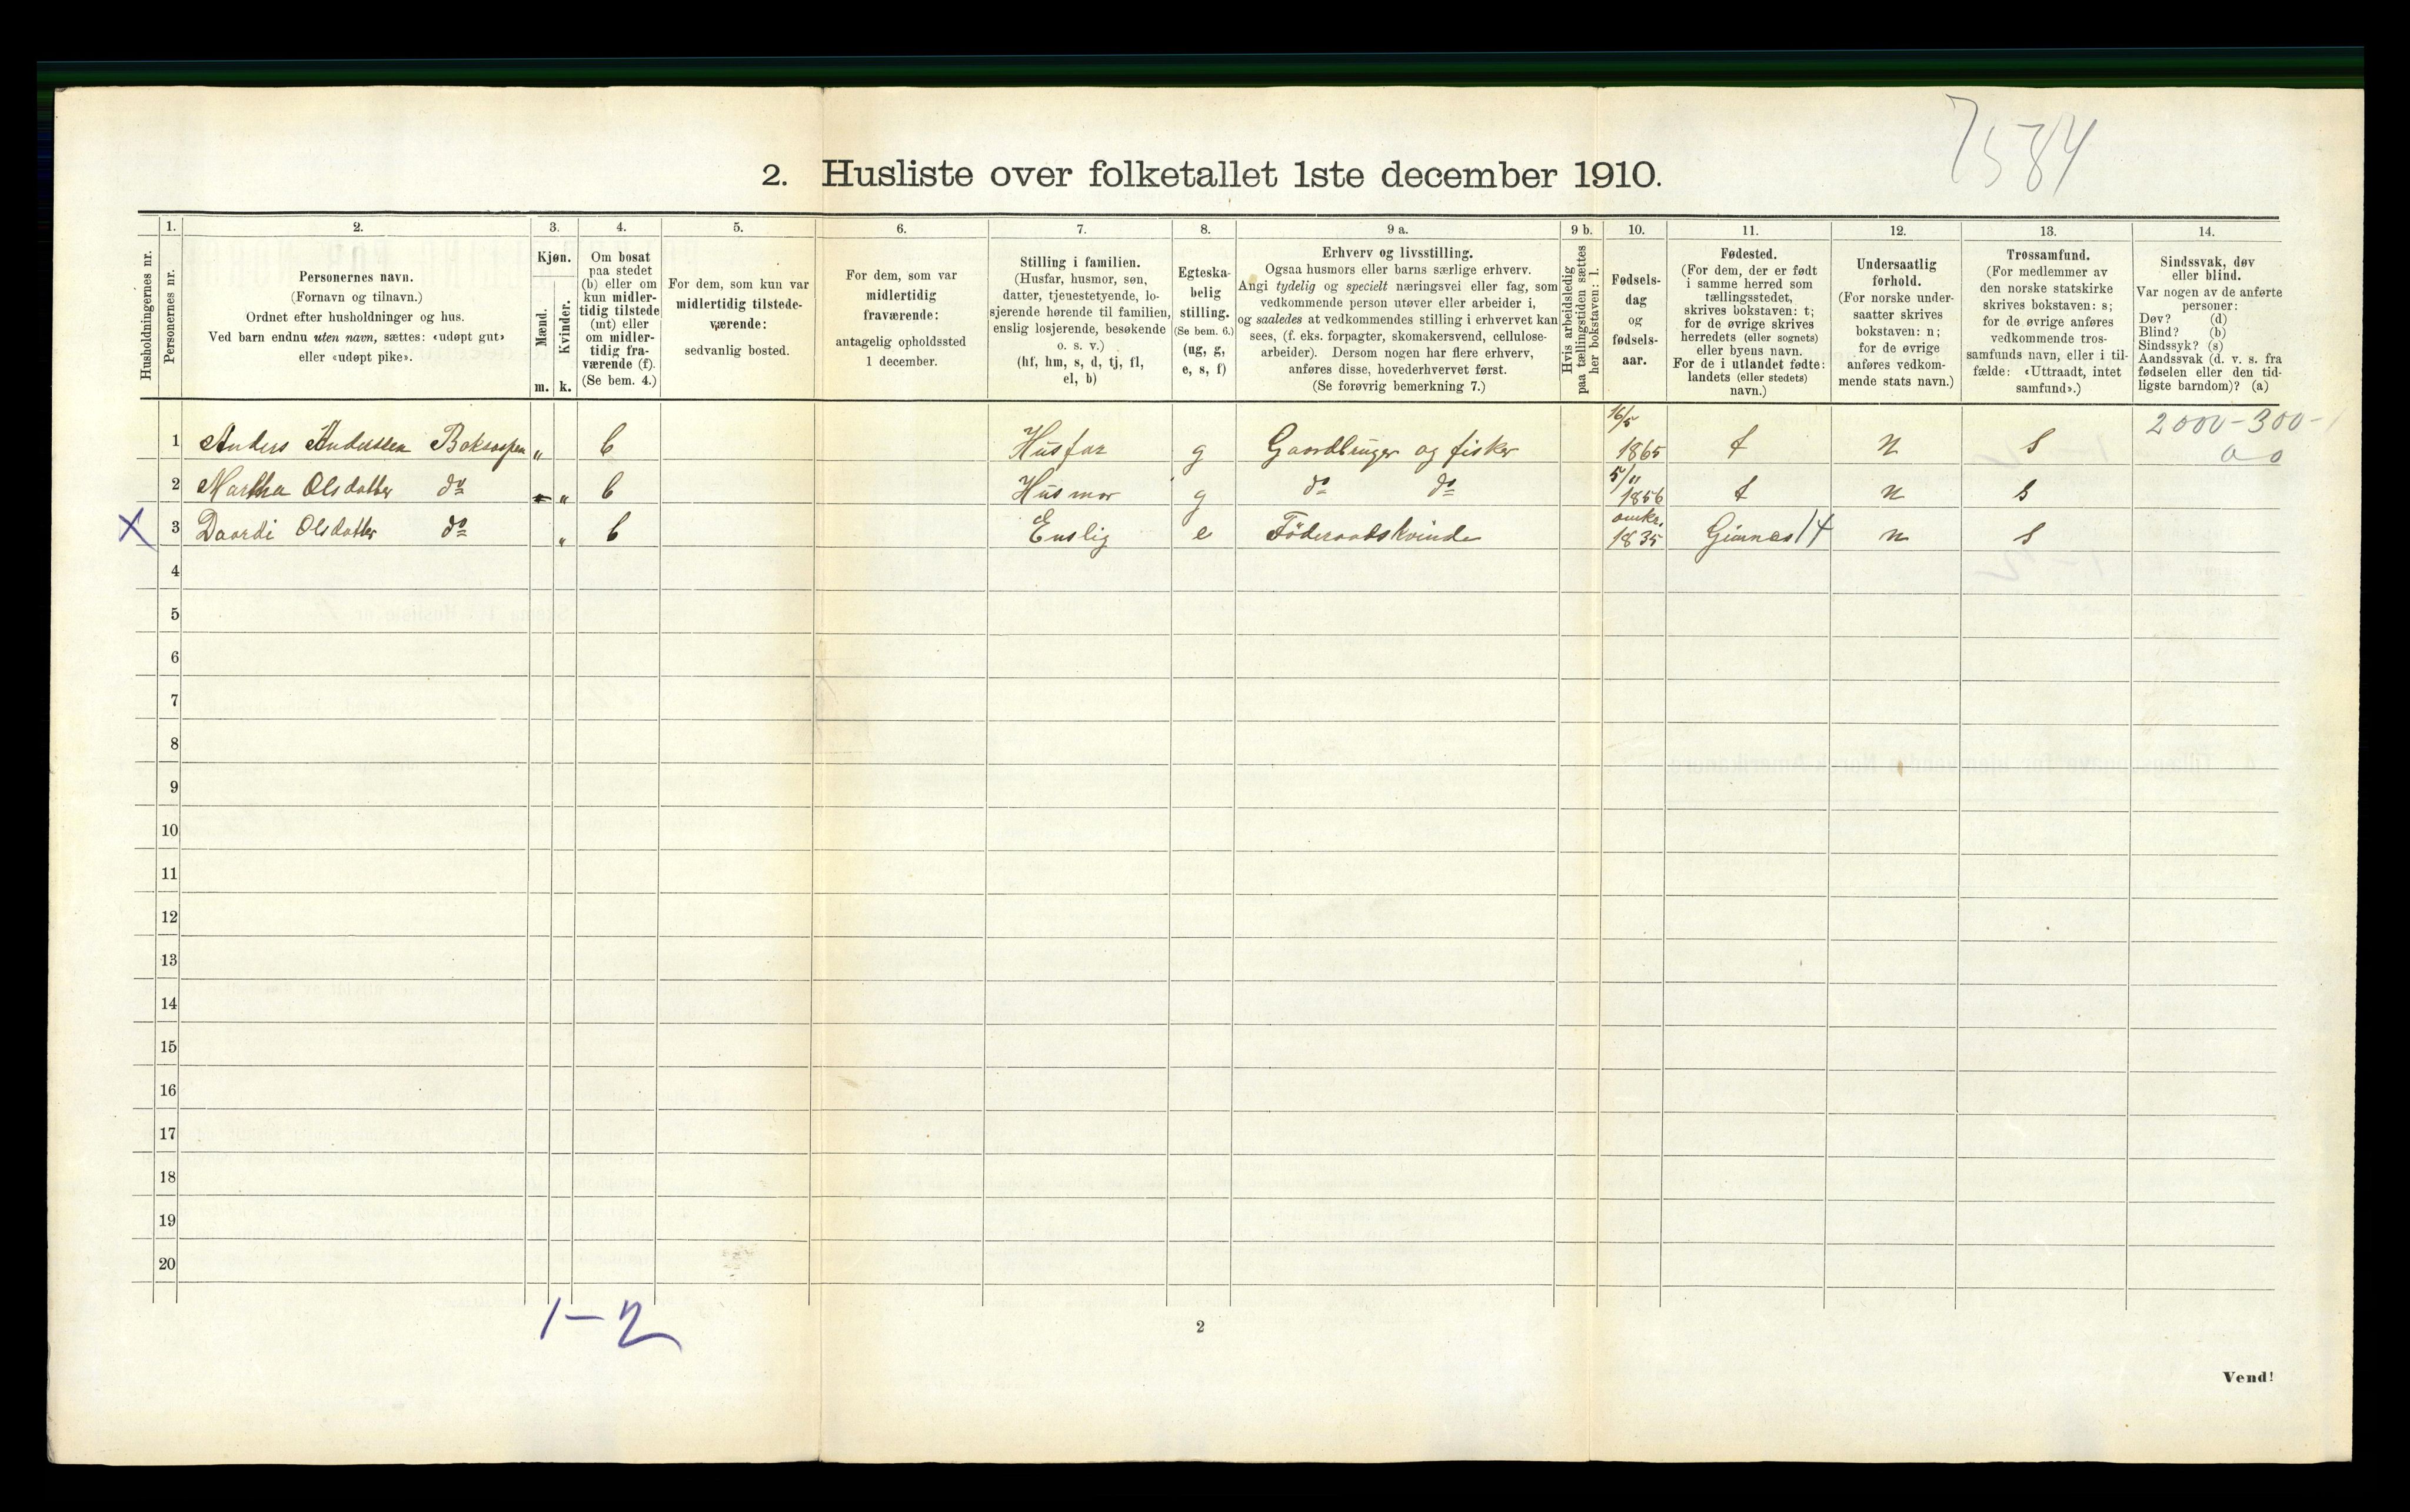 7584
2. Husliste over folketallet 1ste december 1910.
Husholdningernes nr.
1.
Personernes nr.
2.
Personernes navn.
(Fornavn og tilnavn.)
Ordnet efter husholdninger og hus.
Ved barn endnu uten navn, sættes: «udøpt gut»
eller «udøpt pike».
3.
Kjøn.
Mænd.
Kvinder.
m. k.
4.
Om bosat
paa stedet
(b) eller om
kun midler-
tidig tilstede
(mt) eller
om midler-
tidig fra-
værende (f).
(Se bem. 4.)
5.
For dem, som kun var
midlertidig tilstede-
værende:
sedvanlig bosted.
6.
For dem, som var
midlertidig
fraværende:
antagelig opholdssted
1 december.
7.
Stilling i familien.
(Husfar, husmor, søn,
datter, tjenestetyende, lo-
sjerende hørende til familien,
enslig losjerende, besøkende
o. s. v.)
(hf, hm, s, d, tj, fl,
el, b)
8.
Egteska-
belig
stilling.
(Se bem. 6.)
(ug, g,
e, s, f)
9 a.
Erhverv og livsstilling.
Ogsaa husmors eller barns særlige erhverv.
Angi tydelig og specielt næringsvei eller fag, som
vedkommende person utøver eller arbeider i,
og saaledes at vedkommendes stilling i erhvervet kan
sees, (f. eks. forpagter, skomakersvend, cellulose-
arbeider). Dersom nogen har flere erhverv,
anføres disse, hovederhvervet først.
(Se forøvrig bemerkning 7.)
9 b.
Hvis arbeidsledig
paa tællingstiden sættes
her bokstaven: l.
10.
Fødsels-
dag
og
fødsels-
aar.
11.
Fødested.
(For dem, der er født
i samme herred som
tællingsstedet,
skrives bokstaven: t;
for de øvrige skrives
herredets (eller sognets)
eller byens navn.
For de i utlandet fødte:
landets (eller stedets)
navn.)
12.
Undersaatlig
forhold.
(For norske under-
saatter skrives
bokstaven: n;
for de øvrige
anføres vedkom-
mende stats navn.)
13.
Trossamfund.
(For medlemmer av
den norske statskirke
skrives bokstaven: s;
for de øvrige anføres
vedkommende tros-
samfunds navn, eller i til-
fælde: «Uttraadt, intet
samfund».)
14.
Sindssvak, døv
eller blind.
Var nogen av de anførte
personer:
Døv? (d)
Blind? (b)
Sindssyk? (s)
Aandssvak (d. v. s. fra
fødselen eller den tid-
ligste barndom)? (a)
1 Anders Anderssen „ b Husfar g Gaardbruger og fisker 16/5 1865 t n s 2000-300-
0 0
2 Martha Olsdatter do „ b Husmor g do do 5/11 1856 t n s
X 3 Daardi Olsdatter do „ b Enslig e Föderaadskvinde omkr. 1835 14 n s
4
5
6
7
8
9
10
11
12
13
14
15
16
17
18
19
20
1-2
2
Vend!